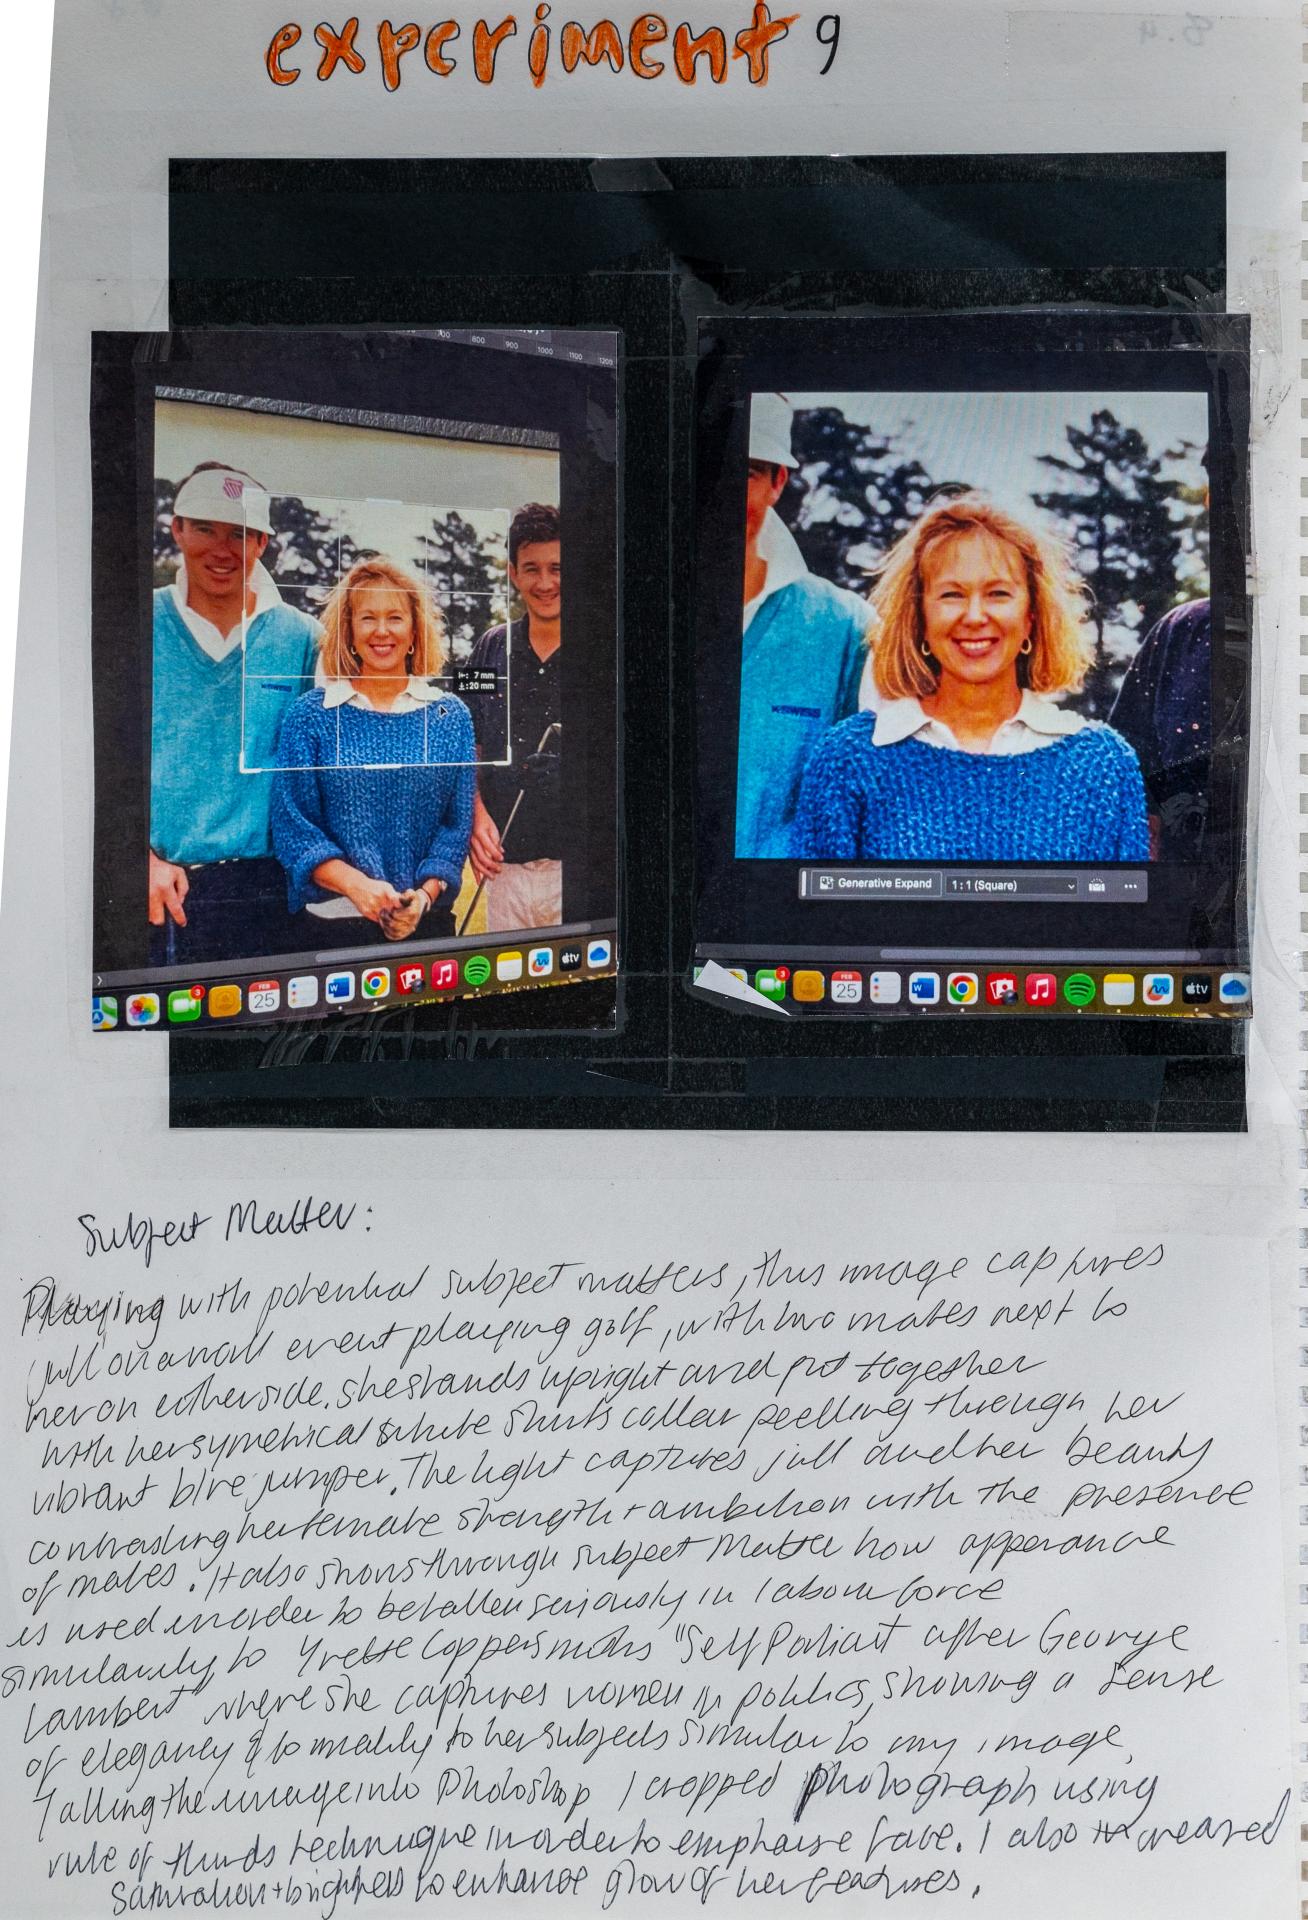 experiment 9
700 800 900 1000 1100 1200
7 mm
20 mm
Generative Expand 1:1 (Square)
3 FEB 25 W tv
3 FEB 25 W tv
Subject Matter:
Playing with potential subject matters, this image captures
jill on a work event playing golf, with two males next to
her on eitherside. She stands upright and put together
with her symetrical white shirts collar peeling through her
vibrant blue jumper. The light captures jill and her beauty
contrasting her female strength + ambition with the presence
of males. It also shows through subject matter how apperance
is used in order to be taken seriously in labour force
simularly to Yvette Coppersmiths "Self Portiat after George
Lambert" where she captures women in politics, showing a sense
of elegancy & formality to her subjects simular to my image.
Taking the image into Photoshop I cropped photograph using
rule of thirds technique in order to emphasise face. I also increased
saturation + brightness to enhance glow of her features.